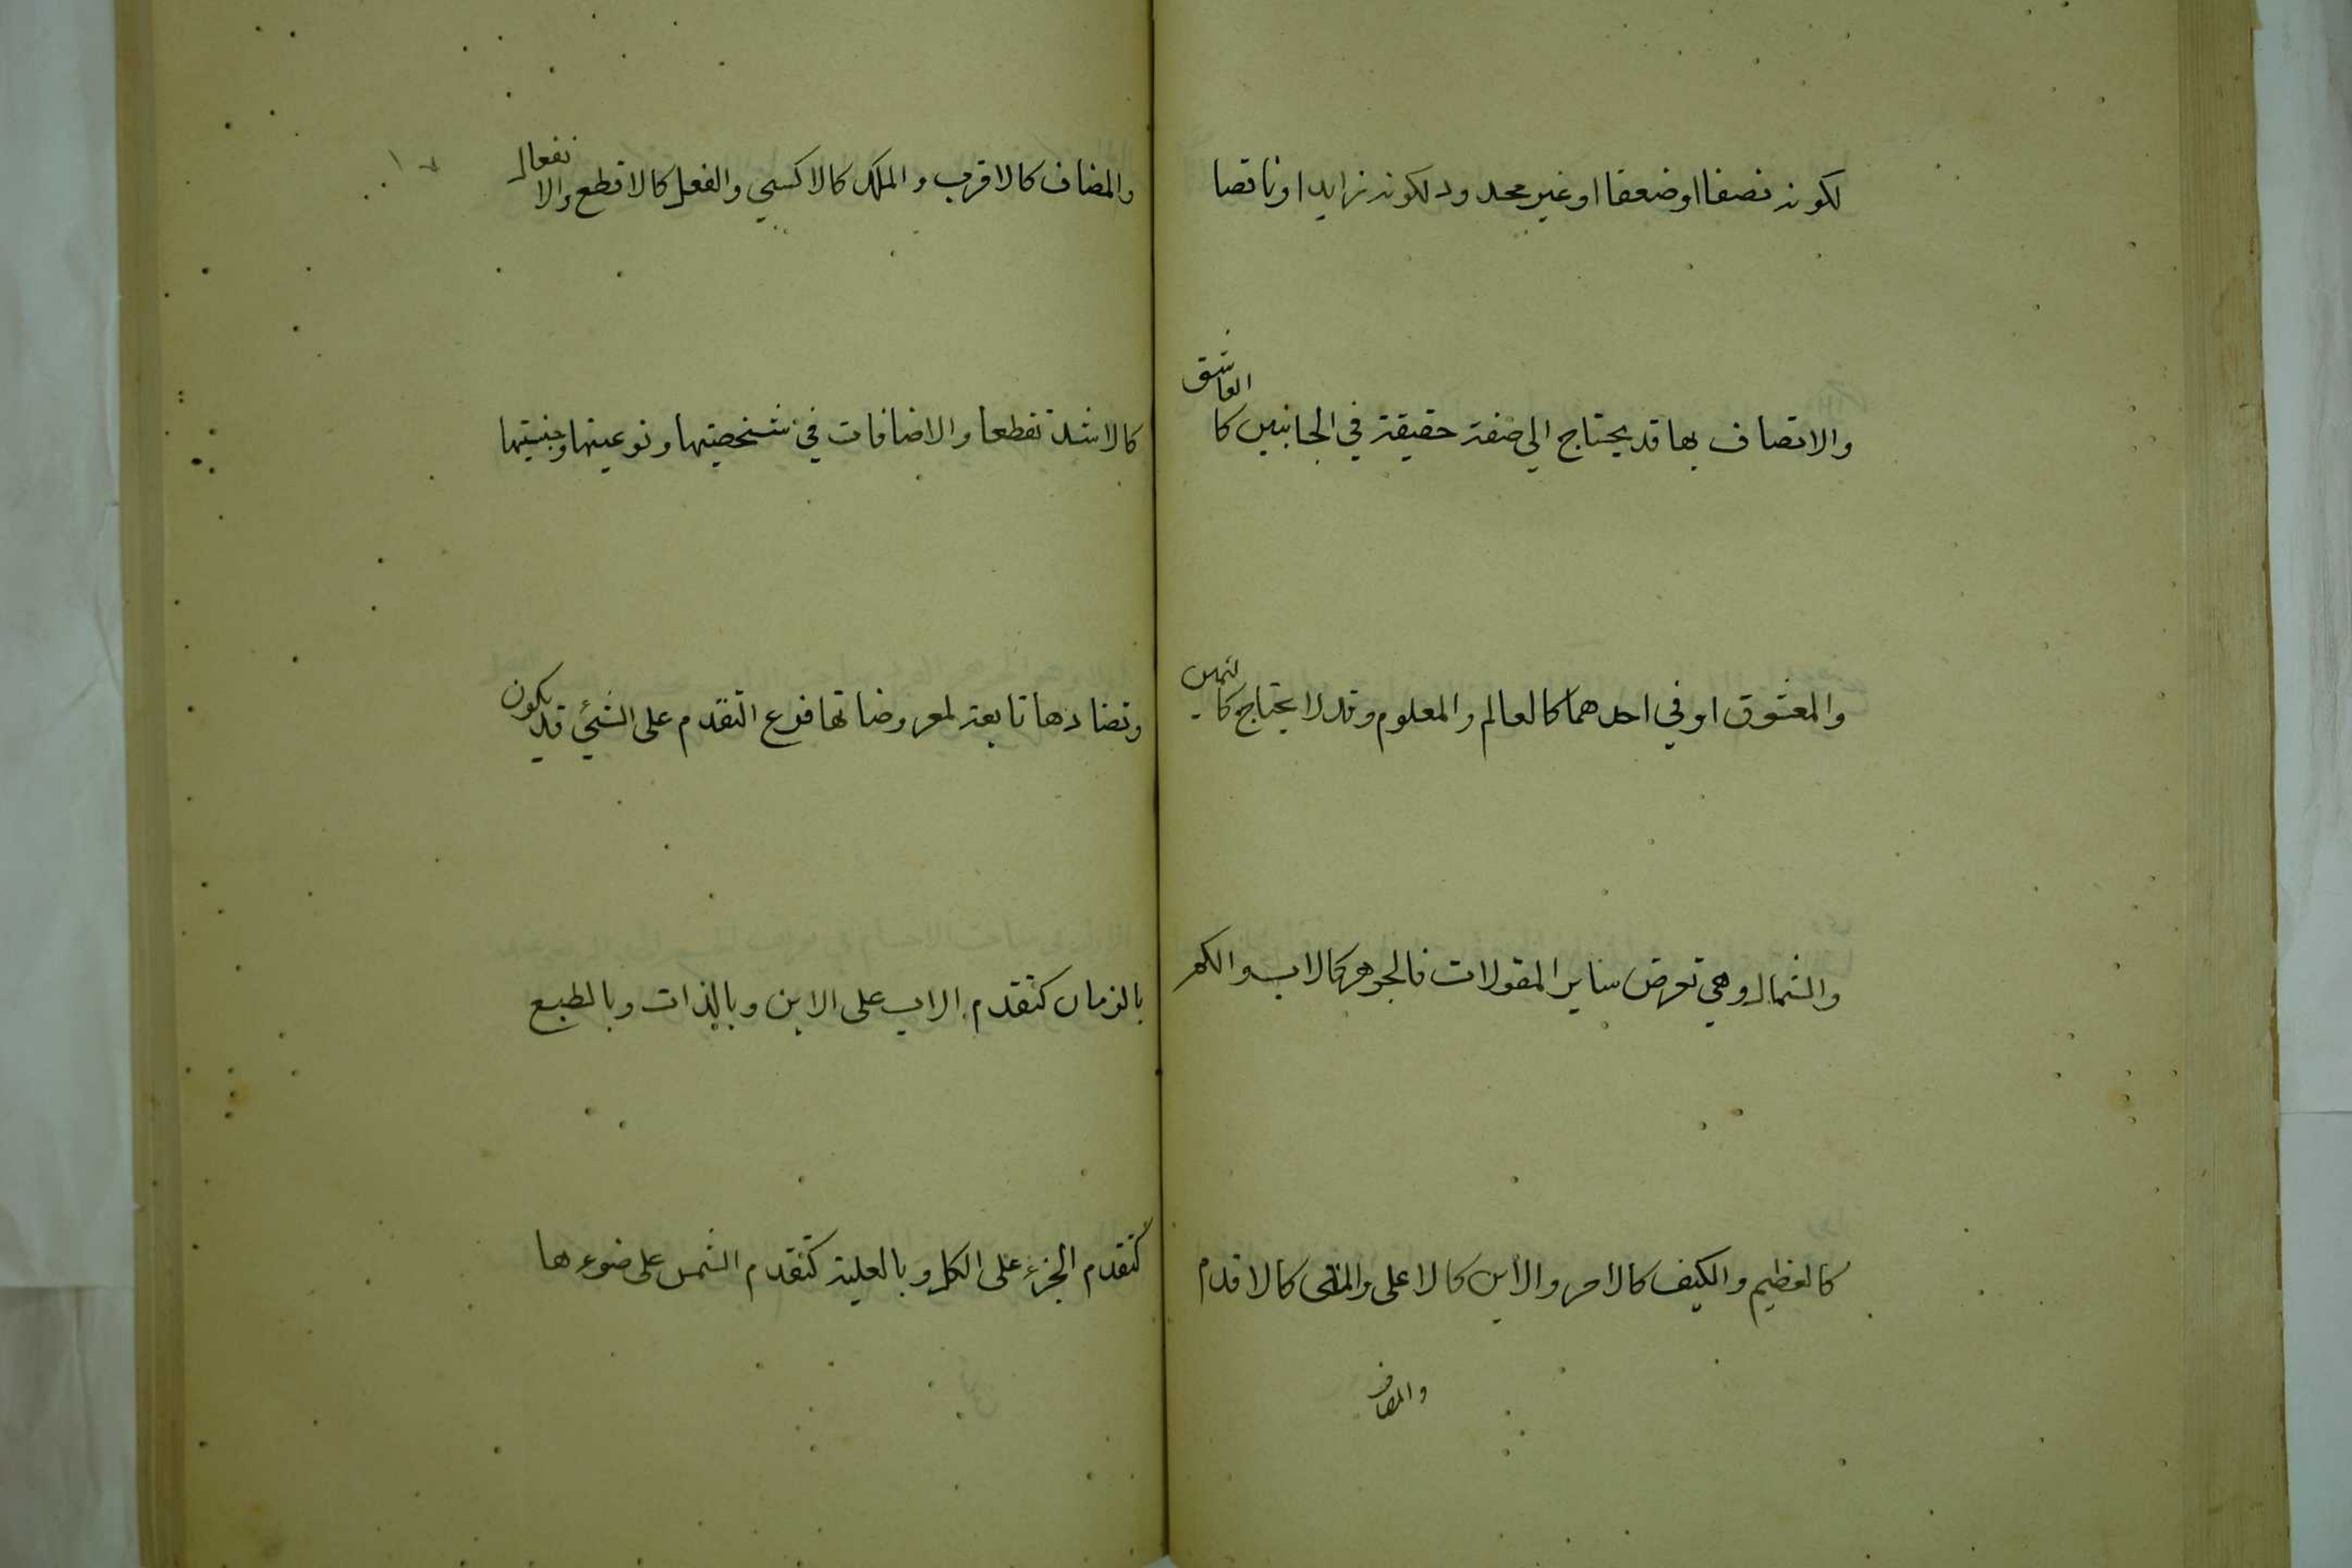 لكونه نصفا اوضعفا او غير محدود لكونه زايدا او ناقصا
والاتصاف بها قد يحتاج الي صفة حقيقة في الجانبين كالعاشق
والمعشوق او في احدهما كالعالم والمعلوم وقد لا يحتاج كاليمين
والشمال وهي تعرض ساير المقولات فالجوهر كالاب والكم
كالعظيم والكيف كالاحر والاين كالاعلى والمتى كالاقدم
والمضاف
والمضاف كالاقرب والملك كالاكسي والفعل كالاقطع والانفعال
كالاشد تقطعا والاضافات في شخصيتها ونوعيتها وجنسيتها
وتضادها تابعة لمعروضاتها فرع التقدم على الشئ قد يكون
بالزمان كتقدم الاب على الابن وبالذات وبالطبع
كتقدم الجزء على الكل وبالعلية كتقدم الشمس على ضوءها